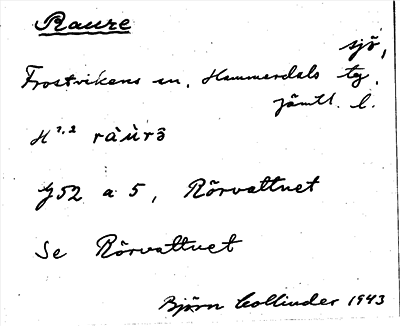 Raure
sjö,
Frostvikens sn, Hammerdals tg.
jämtl. l.
H 1,2 ràùrə
J52 a 5, Rörvattnet
Se Rörvattnet
Björn Collinder 1943